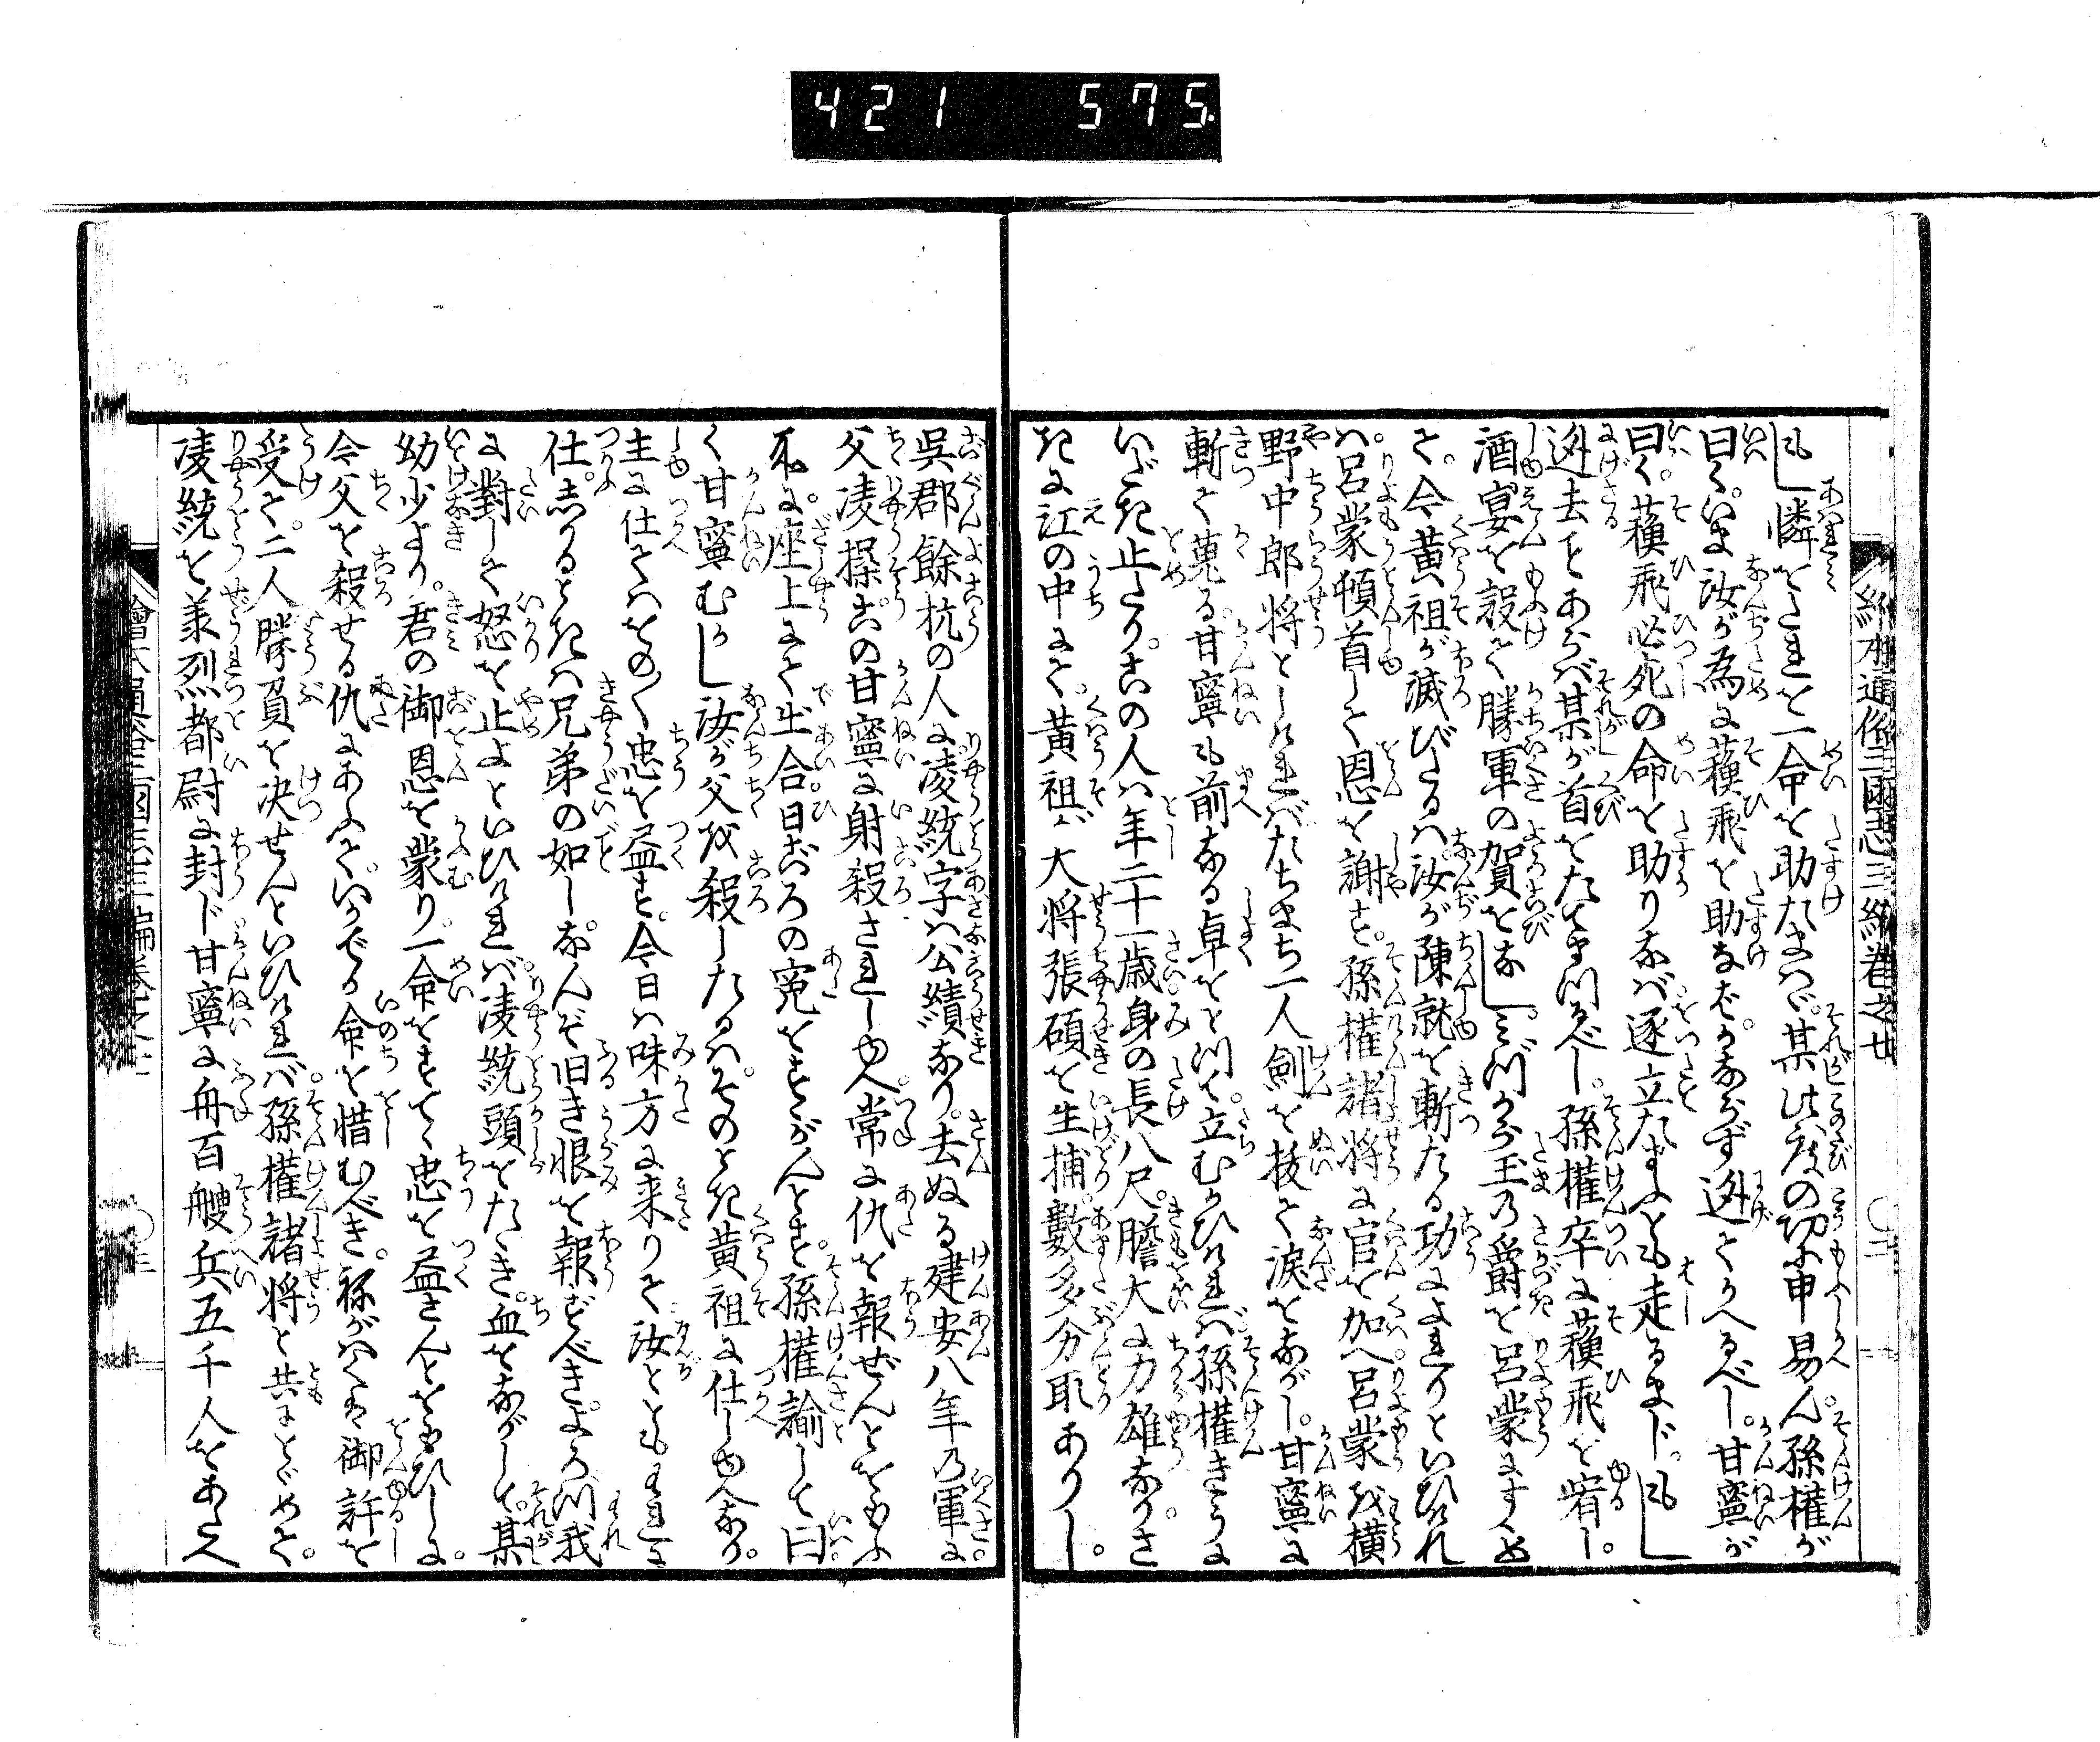 421 575
絵本通俗三國志三編巻之廿
もし憐をたれて一命を助たまハゞ某此度の功に申易ん。孫權が
曰く。いま汝が為に蘓飛を助なば。かならず迯てかへるべし。甘寧が
曰く。蘓飛必死の命を助りなバ。逐立たまふとも走るまじ。もし
迯去ことあらバ某が首をたてまつるべし。孫權卒に蘓飛を宥し。
酒宴を設て勝軍の賀をなし。ミづから玉の爵を呂蒙にすゝめ
て。今黄祖が滅びたるハ汝が陳就を斬たる功によれりといひけれ
ハ。呂蒙頓首して恩を謝す。孫權諸将に官を加へ呂蒙を横
野中郎将としけれバたちまち一人劍を抜て涙をながし。甘寧に
斬て蒐る。甘寧も前なる卓をとつて。立むかひけれバ。孫權きうに
いだき止たり。この人ハ年二十一歳。身の長八尺。膽大に力雄なり。さ
きに江の中にて。黄祖が大将張碩を生捕。數多分取ありし。
呉郡餘杭の人に凌統字ハ公績なり。去ぬる建安八年の軍に。
父凌操この甘寧に射殺されしゆへ。常に仇を報ぜんとをもふ
所に。座上にて出合日ごろの寃をそゝがんとす。孫權諭して曰
く甘寧むかし汝が父を殺したるハ。そのとき黄祖に仕しゆへなり。
主に仕てハをの〱忠を益す。今日ハ味方に来りて。汝とともにわれに
仕。しかるときハ兄弟の如し。なんぞ旧き恨を報ずべき。よろつ我
に對して怒を止よといひけれバ。凌統頭をたゝき。血をながして。某
幼少より。君の御恩を蒙り。一命をすてゝ忠を益さんとをもひしに。
今父を殺せる仇にあふて。いかでか命を惜むべき。祢がハくハ御許を
受て。二人勝負を决せんといひけれバ。孫權諸将と共にとゞめて。
凌統を義烈都尉に封じ甘寧に舟百艘兵五千人をあたへ
繪本通俗三國志三編巻之廿